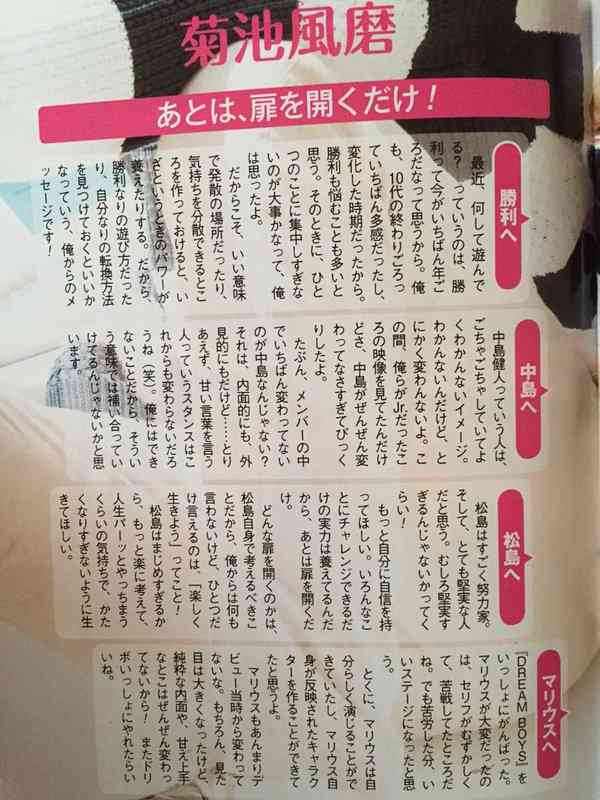 菊池風磨
あとは、扉を開くだけ！
勝利へ
最近、何して遊んで
る？ っていうのは、勝
利って今がいちばん年ご
ろだなって思うから。俺
も、10代の終わりごろっ
ていちばん多感だったし、
変化した時期だったから。
勝利も悩むことも多いと
思う。そのときに、ひと
つのことに集中しすぎな
いのが大事かなって、俺
は思ったよ。
だからこそ、いい意味
で発散の場所だったり、
気持ちを分散できるとこ
ろを作っておけると、い
ざというときのパワーが
養えたりする。だから、
勝利なりの遊び方だった
り、自分なりの転換方法
を見つけておくといいか
なっていう、俺からのメ
ッセージです！
中島へ
中島健人っていう人は、
ごちゃごちゃしていてよ
くわかんないイメージ。
わかんないんだけど、と
にかく変わんないよ。こ
の間、俺らがJr.だったこ
ろの映像を見てたんだけ
どさ、中島がぜんぜん変
わってなさすぎてびっく
りしたよ。
たぶん、メンバーの中
でいちばん変わってない
のが中島なんじゃない？
それは、内面的にも、外
見的にもだけど……とり
あえず、甘い言葉を言う
人っていうスタンスはこ
れからも変わらないだろ
うね（笑）。俺にはでき
ないことだから、そうい
う意味では補い合ってい
けてるんじゃないかと思
います。
松島へ
松島はすごく努力家。
そして、とても堅実な人
だと思う。むしろ堅実す
ぎるんじゃないかってく
らい！
もっと自分に自信を持
ってほしい。いろんなこ
とにチャレンジできるだ
けの実力は養えてるんだ
から、あとは扉を開くだ
け。
どんな扉を開くのかは、
松島自身で考えるべきこ
とだから、俺からは何も
言わないけど、ひとつだ
け言えるのは、「楽しく
生きよう」ってこと！
松島はまじめすぎるか
ら、もっと楽に考えて、
人生パーッとやっちまう
くらいの気持ちで、かた
くなりすぎないように生
きてほしい。
マリウスへ
『DREAM BOYS』を
いっしょにがんばった。
マリウスが大変だったの
は、セリフがむずかしく
て、苦戦してたところだ
ね。でも苦労した分、い
いステージになったと思
う。
とくに、マリウスは自
分らしく演じることがで
きていたし、マリウス自
身が反映されたキャラク
ターを作ることができて
たと思うよ。
マリウスもあんまりデ
ビュー当時から変わって
ないな。もちろん、見た
目は大きくなったけど、
純粋な内面や、甘え上手
なとこはぜんぜん変わっ
てないから！ またドリ
ボいっしょにやれたらい
いね。